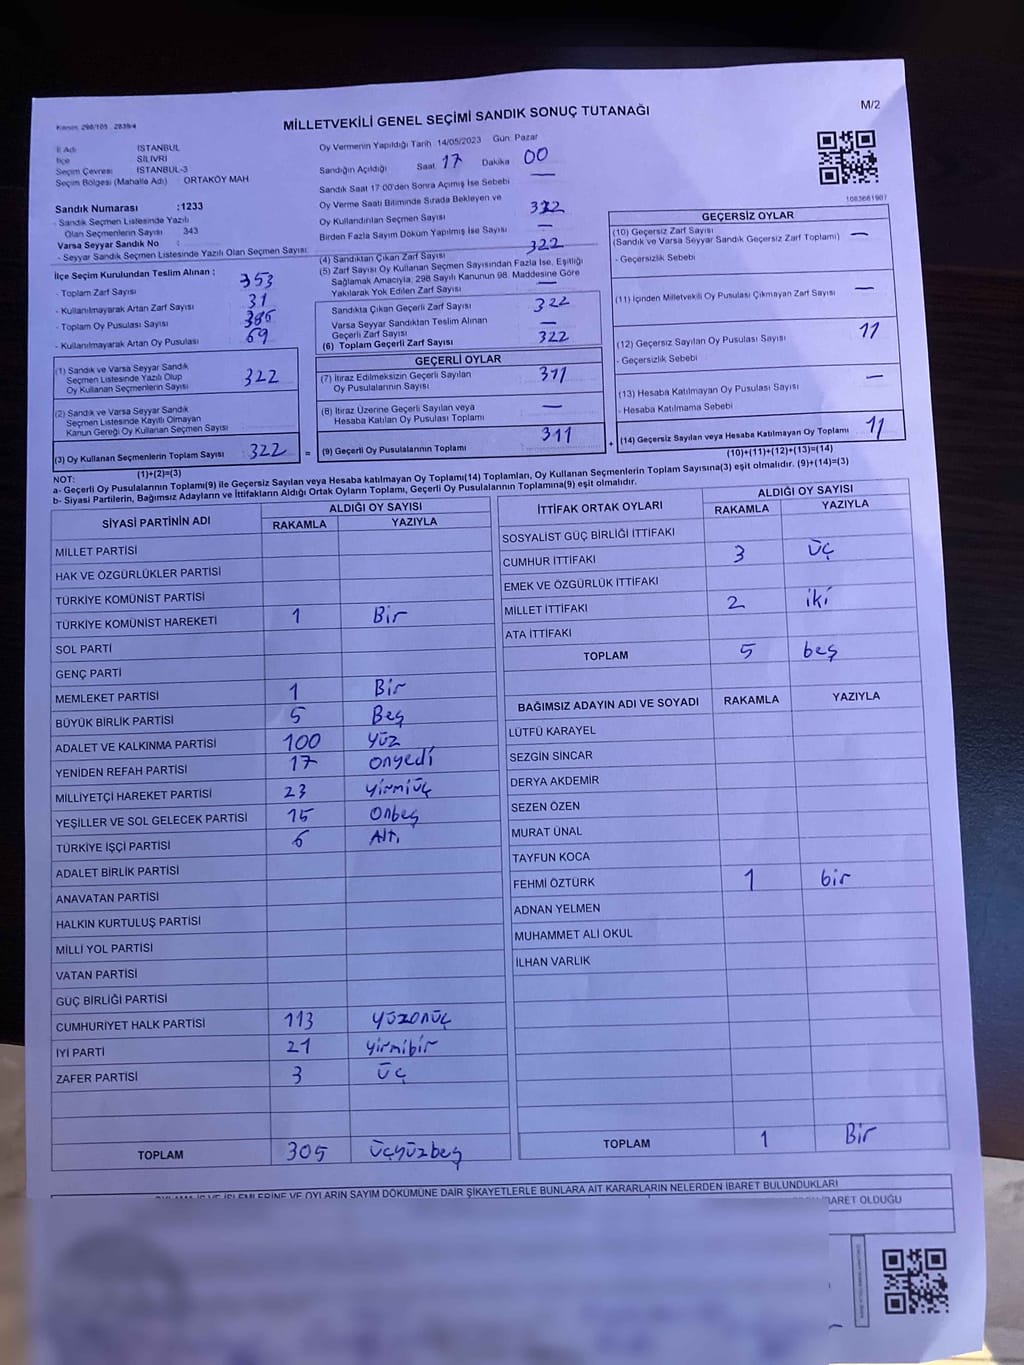 MİLLETVEKİLİ GENEL SEÇİMİ SANDIK SONUÇ TUTANAĞI
M/2
İl Adı İSTANBUL
İlçe SİLİVRİ
Seçim Çevresi İSTANBUL-3
Seçim Bölgesi (Mahalle Adı) ORTAKÖY MAH
Sandık Numarası :1233
- Sandık Seçmen Listesinde Yazılı
Olan Seçmenlerin Sayısı 343
Varsa Seyyar Sandık No :
- Seyyar Sandık Seçmen Listesinde Yazılı Olan Seçmen Sayısı:
İlçe Seçim Kurulundan Teslim Alınan :
- Toplam Zarf Sayısı 353
- Kullanılmayarak Artan Zarf Sayısı 31
- Toplam Oy Pusulası Sayısı
- Kullanılmayarak Artan Oy Pusulası 69
(1) Sandık ve Varsa Seyyar Sandık
Seçmen Listesinde Yazılı Olup
Oy Kullanan Seçmenlerin Sayısı 322
(2) Sandık ve Varsa Seyyar Sandık
Seçmen Listesinde Kayıtlı Olmayan
Kanun Gereği Oy Kullanan Seçmen Sayısı
(3) Oy Kullanan Seçmenlerin Toplam Sayısı 322 =
(1)+(2)=(3)
Oy Vermenin Yapıldığı Tarih 14/05/2023 Gün Pazar
Sandığın Açıldığı Saat 17 Dakika 00
Sandık Saat 17 00'den Sonra Açılmış İse Sebebi —
Oy Verme Saati Bitiminde Sırada Bekleyen ve
Oy Kullandırılan Seçmen Sayısı 322
Birden Fazla Sayım Döküm Yapılmış İse Sayısı —
(4) Sandıktan Çıkan Zarf Sayısı 322
(5) Zarf Sayısı Oy Kullanan Seçmen Sayısından Fazla İse, Eşitliği
Sağlamak Amacıyla, 298 Sayılı Kanunun 98. Maddesine Göre
Yakılarak Yok Edilen Zarf Sayısı —
Sandıkta Çıkan Geçerli Zarf Sayısı 322
Varsa Seyyar Sandıktan Teslim Alınan
Geçerli Zarf Sayısı —
(6) Toplam Geçerli Zarf Sayısı 322
GEÇERLİ OYLAR
(7) İtiraz Edilmeksizin Geçerli Sayılan
Oy Pusulalarının Sayısı 311
(8) İtiraz Üzerine Geçerli Sayılan veya
Hesaba Katılan Oy Pusulası Toplamı —
(9) Geçerli Oy Pusulalarının Toplamı 311 +
1083681907
GEÇERSİZ OYLAR
(10) Geçersiz Zarf Sayısı —
(Sandık ve Varsa Seyyar Sandık Geçersiz Zarf Toplamı)
- Geçersizlik Sebebi
(11) İçinden Milletvekili Oy Pusulası Çıkmayan Zarf Sayısı —
(12) Geçersiz Sayılan Oy Pusulası Sayısı 11
- Geçersizlik Sebebi
(13) Hesaba Katılmayan Oy Pusulası Sayısı —
- Hesaba Katılmama Sebebi
(14) Geçersiz Sayılan veya Hesaba Katılmayan Oy Toplamı 11
(10)+(11)+(12)+(13)=(14)
NOT:
a- Geçerli Oy Pusulalarının Toplamı(9) ile Geçersiz Sayılan veya Hesaba katılmayan Oy Toplamı(14) Toplamları, Oy Kullanan Seçmenlerin Toplam Sayısına(3) eşit olmalıdır. (9)+(14)=(3)
b- Siyasi Partilerin, Bağımsız Adayların ve İttifakların Aldığı Ortak Oyların Toplamı, Geçerli Oy Pusulalarının Toplamına(9) eşit olmalıdır.
SİYASİ PARTİNİN ADI ALDIĞI OY SAYISI
RAKAMLA YAZIYLA
MİLLET PARTİSİ
HAK VE ÖZGÜRLÜKLER PARTİSİ
TÜRKİYE KOMÜNİST PARTİSİ
TÜRKİYE KOMÜNİST HAREKETİ 1 Bir
SOL PARTİ
GENÇ PARTİ
MEMLEKET PARTİSİ 1 Bir
BÜYÜK BİRLİK PARTİSİ 5 Beş
ADALET VE KALKINMA PARTİSİ 100 yüz
YENİDEN REFAH PARTİSİ 17 onyedi
MİLLİYETÇİ HAREKET PARTİSİ 23 yirmiüç
YEŞİLLER VE SOL GELECEK PARTİSİ 15 Onbeş
TÜRKİYE İŞÇİ PARTİSİ 6 Altı
ADALET BİRLİK PARTİSİ
ANAVATAN PARTİSİ
HALKIN KURTULUŞ PARTİSİ
MİLLİ YOL PARTİSİ
VATAN PARTİSİ
GÜÇ BİRLİĞİ PARTİSİ
CUMHURİYET HALK PARTİSİ 113 yüzonüç
İYİ PARTİ 21 yirmibir
ZAFER PARTİSİ 3 üç
TOPLAM 305 üçyüzbeş
İTTİFAK ORTAK OYLARI ALDIĞI OY SAYISI
RAKAMLA YAZIYLA
SOSYALİST GÜÇ BİRLİĞİ İTTİFAKI
CUMHUR İTTİFAKI 3 üç
EMEK VE ÖZGÜRLÜK İTTİFAKI
MİLLET İTTİFAKI 2 iki
ATA İTTİFAKI
TOPLAM 5 beş
BAĞIMSIZ ADAYIN ADI VE SOYADI RAKAMLA YAZIYLA
LÜTFÜ KARAYEL
SEZGİN SİNCAR
DERYA AKDEMİR
SEZEN ÖZEN
MURAT ÜNAL
TAYFUN KOCA
FEHMİ ÖZTÜRK 1 bir
ADNAN YELMEN
MUHAMMET ALİ OKUL
İLHAN VARLIK
TOPLAM 1 Bir
İŞLEMLERİNE VE OYLARIN SAYIM DÖKÜMÜNE DAİR ŞİKAYETLERLE BUNLARA AİT KARARLARIN NELERDEN İBARET BULUNDUKLARI
İBARET OLDUĞU